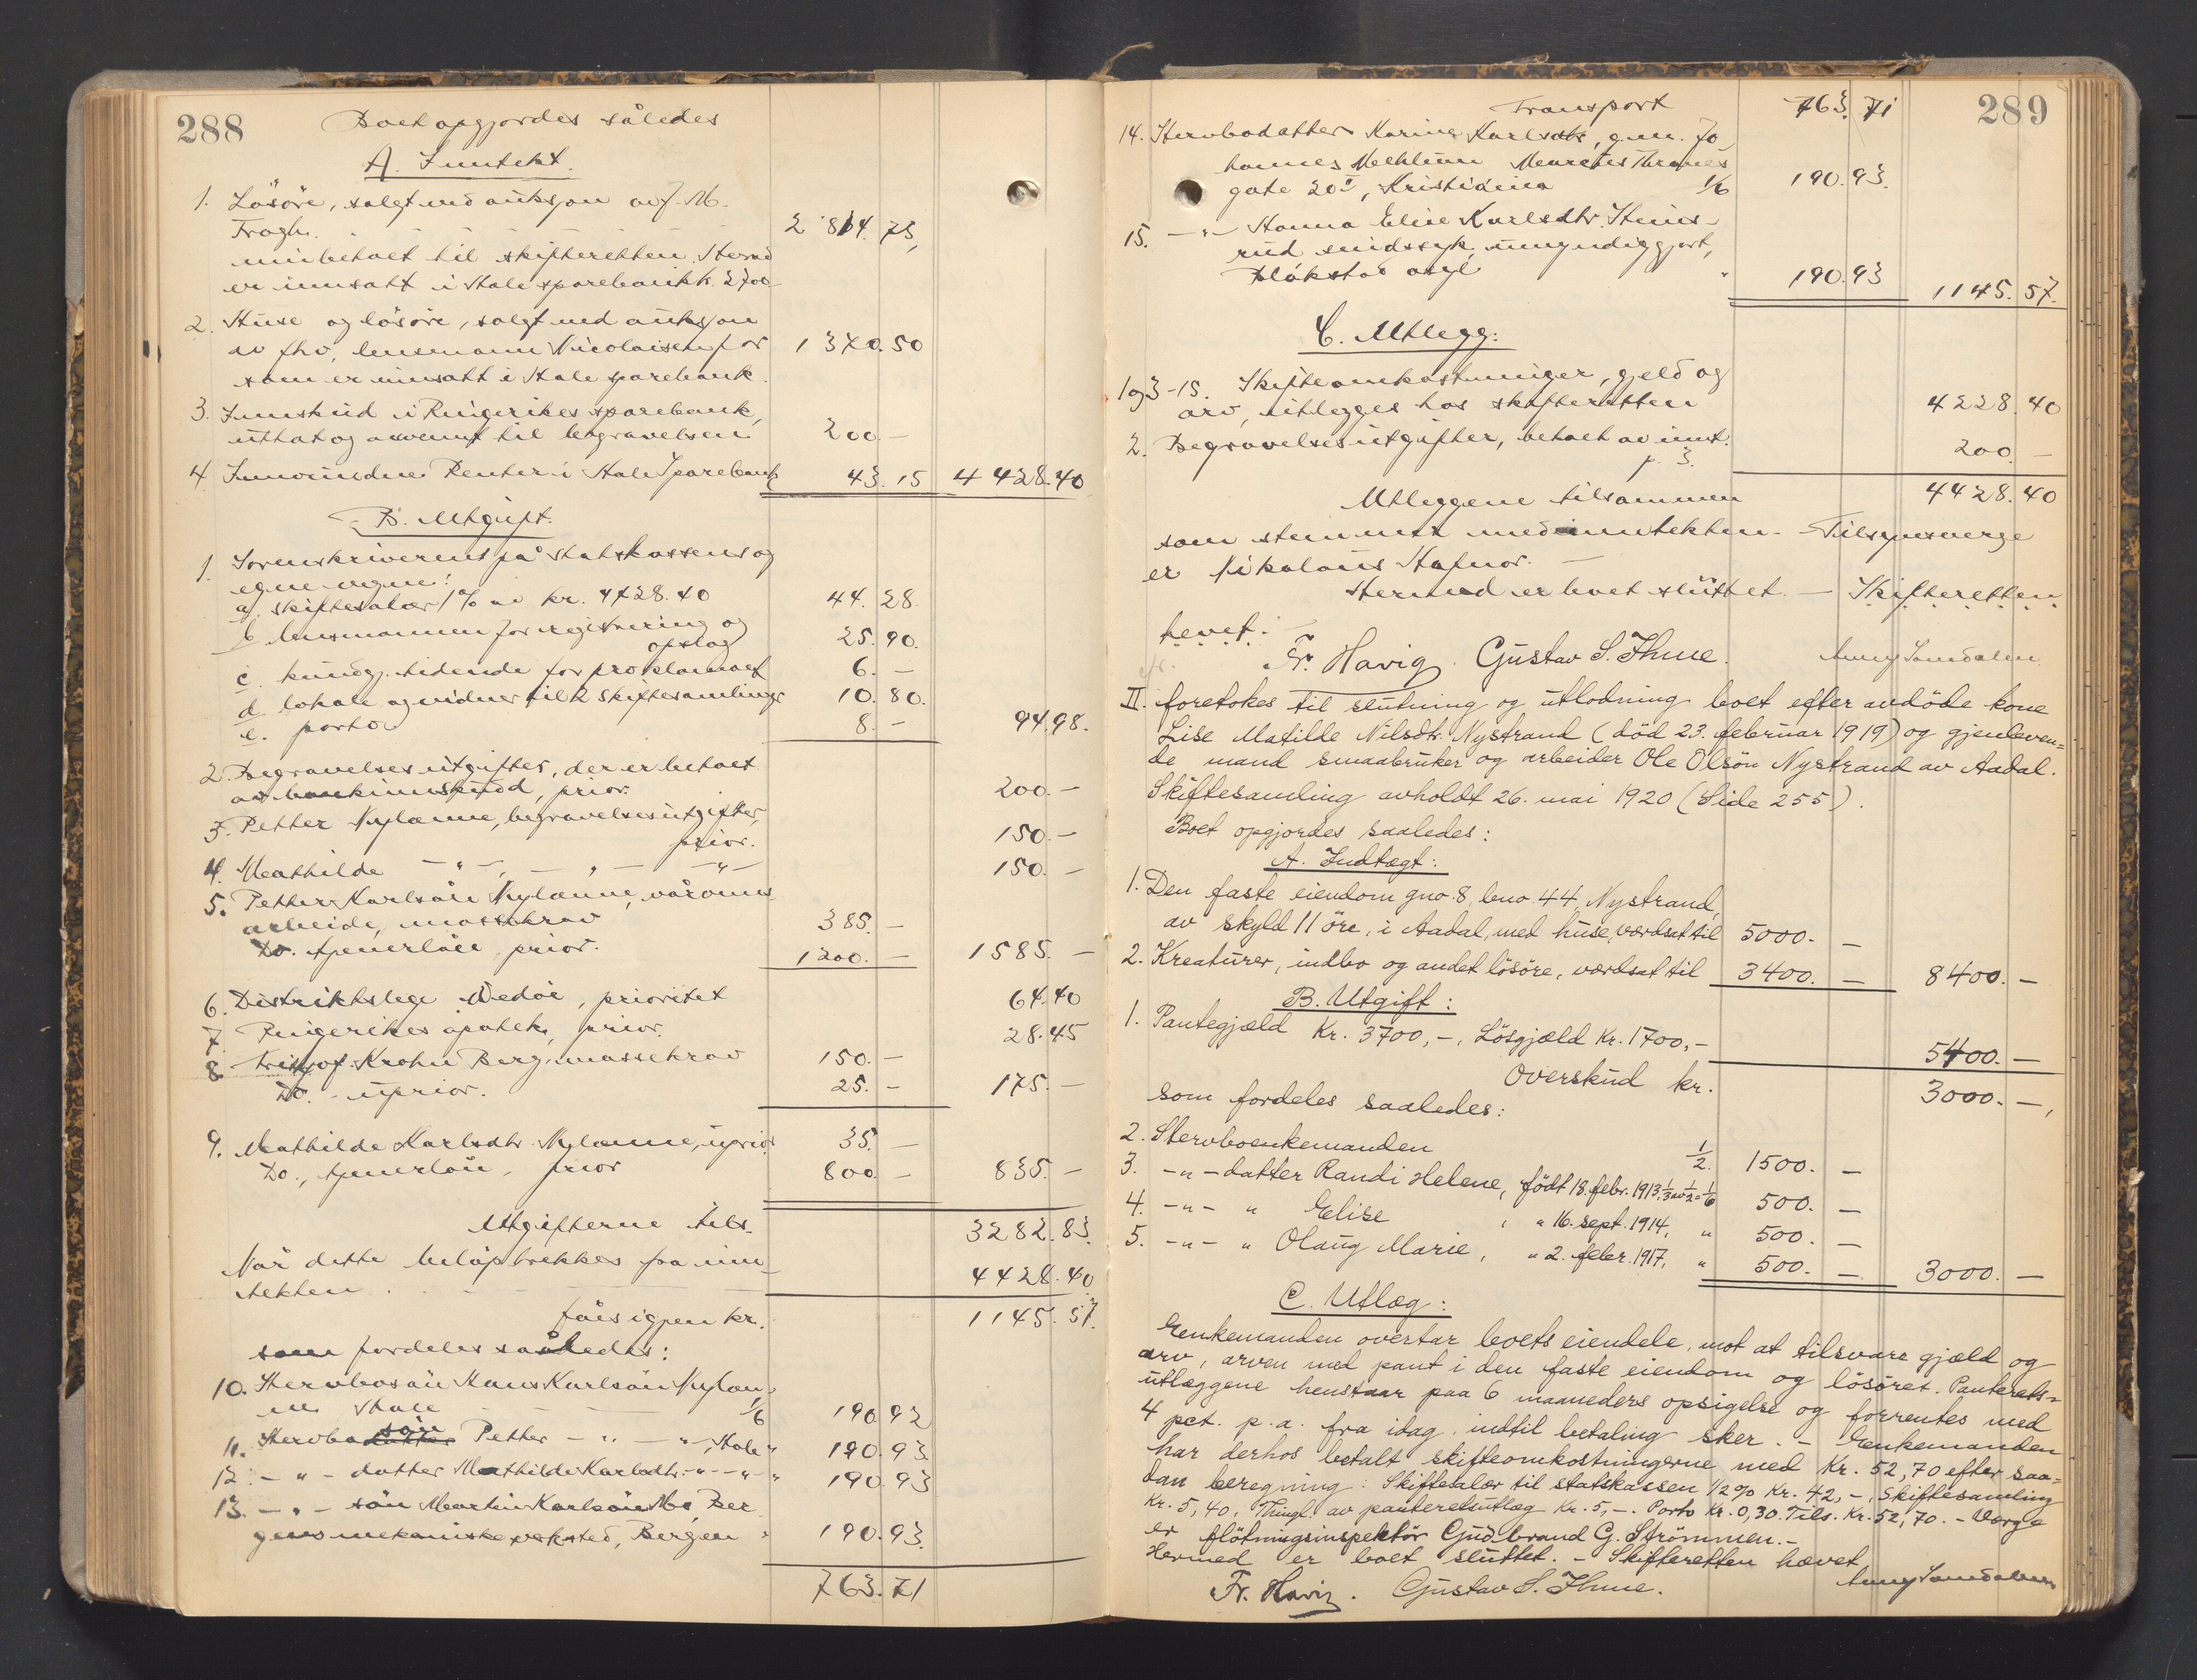 288
Boet opgjordes således
A. Inntekt.
1. Lösöre, salgt ved auksjon av J. M.
Frogh. 2814.75,
innbetalt til skifteretten. Herav
er innsatt i Hole sparebank k. 2700
2. Huse og lösöre, salgt ved auksjon
av fhv. lensmann Nicolaisen for 1370.50
som er innsatt i Hole sparebank.
3. Innskud i Ringerikes sparebank,
uttat og anvent til begravelsen 200.-
4. Innvundne Renter i Hole Sparebank 43.15 4428.40
B. Utgift.
1. Sorenskriveren på statskassens og
egne vegne:
a. skiftesalær 1% av kr. 4428.40 44.28.
b lensmannen for registrering og
opslag 25.90.
c. kundgj. tidende for proklamaet 6.-
d lokale og vidner til 2 skiftesamlinger 10.80.
e. porto 8.- 94.98.
2. Begravelsesutgifter, der er betalt
av bankinnskud, prior. 200.-
3. Petter Nylænne, begravelsesutgifter,
prior. 150.-
4. Mathilde -"-, -"- -"- 150.-
5. Petter Karlsön Nylænne, våronns
arbeide, massekrav 385.-
Do. tjenerlön, prior. 1200.- 1585.-
6. Distriktslege Wedöe, prioritet 64.40
7 Ringerikes apotek, prior. 28.45
8 Fritjof Krohn Berg, massekrav 150.-
Do. - uprior. 25.- 175.-
9. Mathilde Karlsdtr. Nylænne, uprior. 35.-
Do., tjenerlön, prior 800.- 835.-
Utgifterne tils. 3282.83.
Når dette belöp trekkes fra inn-
tekten 4428.40
fåes igjen kr. 1145.57.
som fordeles således:
10. Stervbosön Hans Karlsön Nylæn,
ne Hole 1/6 190.92
11. Stervbodatter sön Petter -"- -"-, Hole " 190.93
12 -"- datter Mathilde Karlsdtr. -"- -"- " 190.93
13. -"- sön Martin Karlsön Mo, Ber
gens mekaniske verksted, Bergen " 190.93.
763.71
289
Transport 763.71
14. Stervbodatter Karina Karlsdtr, gm. Jo
hannes Mehlum Marcus Thranes
gate 20 II, Kristiania 1/6 190.93.
15. -"- Hanna Elise Karlsdtr. Stens-
rud sindssyk, umyndiggjort,
Blakstad asyl " 190.93 1145.57.
C. Utlegg:
1 og 3-15. Skifteomkostninger, gjeld og
arv, utlegges hos skifteretten 4228.40
2. Begravelsesutgifter, betalt av innt.
p. 3. 200.-
Utleggene tilsammen 4428.40
som stemmer med inntekten. - Tilsynsverge
er Nikolaus Hafnor. -
Hermed er boet sluttet. - Skifteretten
hevet. -
Fr. Havig. Gustav S. Ihme. Anny Sandalen
II. foretokes til slutning og utlodning boet efter avdöde kone
Lise Matilde Nilsdtr. Nystrand (död 23. februar 1919) og gjenleven=
de mand smaabruker og arbeider Ole Olsön Nystrand av Aadal.
Skiftesamling avholdt 26. mai 1920 (Side 255).
Boet opgjordes saaledes:
A. Indtægt:
1. Den faste eiendom gno. 8, bno. 44, Nystrand,
av skyld 11 öre, i Aadal, med huse, værdsat til 5000.-
2. Kreaturer, indbo og andet lösöre, værdsat til 3400.- 8400.-
B. Utgift:
1. Pantegjæld Kr. 3700,-. Lösgjæld Kr. 1700,- 5400.-
Overskud kr. 3000.-,
som fordeles saaledes:
2. Stervboenkemanden 1/2. 1500.-
3. -"- datter Randi Helene, födt 18. febr. 1913, 1/3 av 1/2 = 1/6 500.-
4. -"- " Elise, " 16. sept. 1914, " 500.-
5. -"- " Olaug Marie, " 2. febr. 1917, " 500.- 3000.-
C. Utlæg:
Enkemanden overtar boets eiendele, mot at tilsvare gjæld og
arv, arven med pant i den faste eiendom og lösöret. Panterets=
utlæggene henstaar paa 6 maaneders opsigelse og forrentes med
4 pct. p.a. fra idag, indtil betaling sker. - Enkemanden
har derhos betalt skifteomkostningerne med Kr. 52,70 efter saa=
dan beregning: Skiftesalær til statskassen 1/2% Kr. 42,-, Skiftesamling
Kr. 5,40, Thingl. av panteretsutlæg Kr. 5,-. Porto Kr. 0,30. Tils. Kr. 52,70. - Verge
er flötningsinspektör Gudbrand G. Strömmen. -
Hermed er boet sluttet. - Skifteretten hævet.
Fr. Havig. Gustav S. Ihme. Anny Sandalen